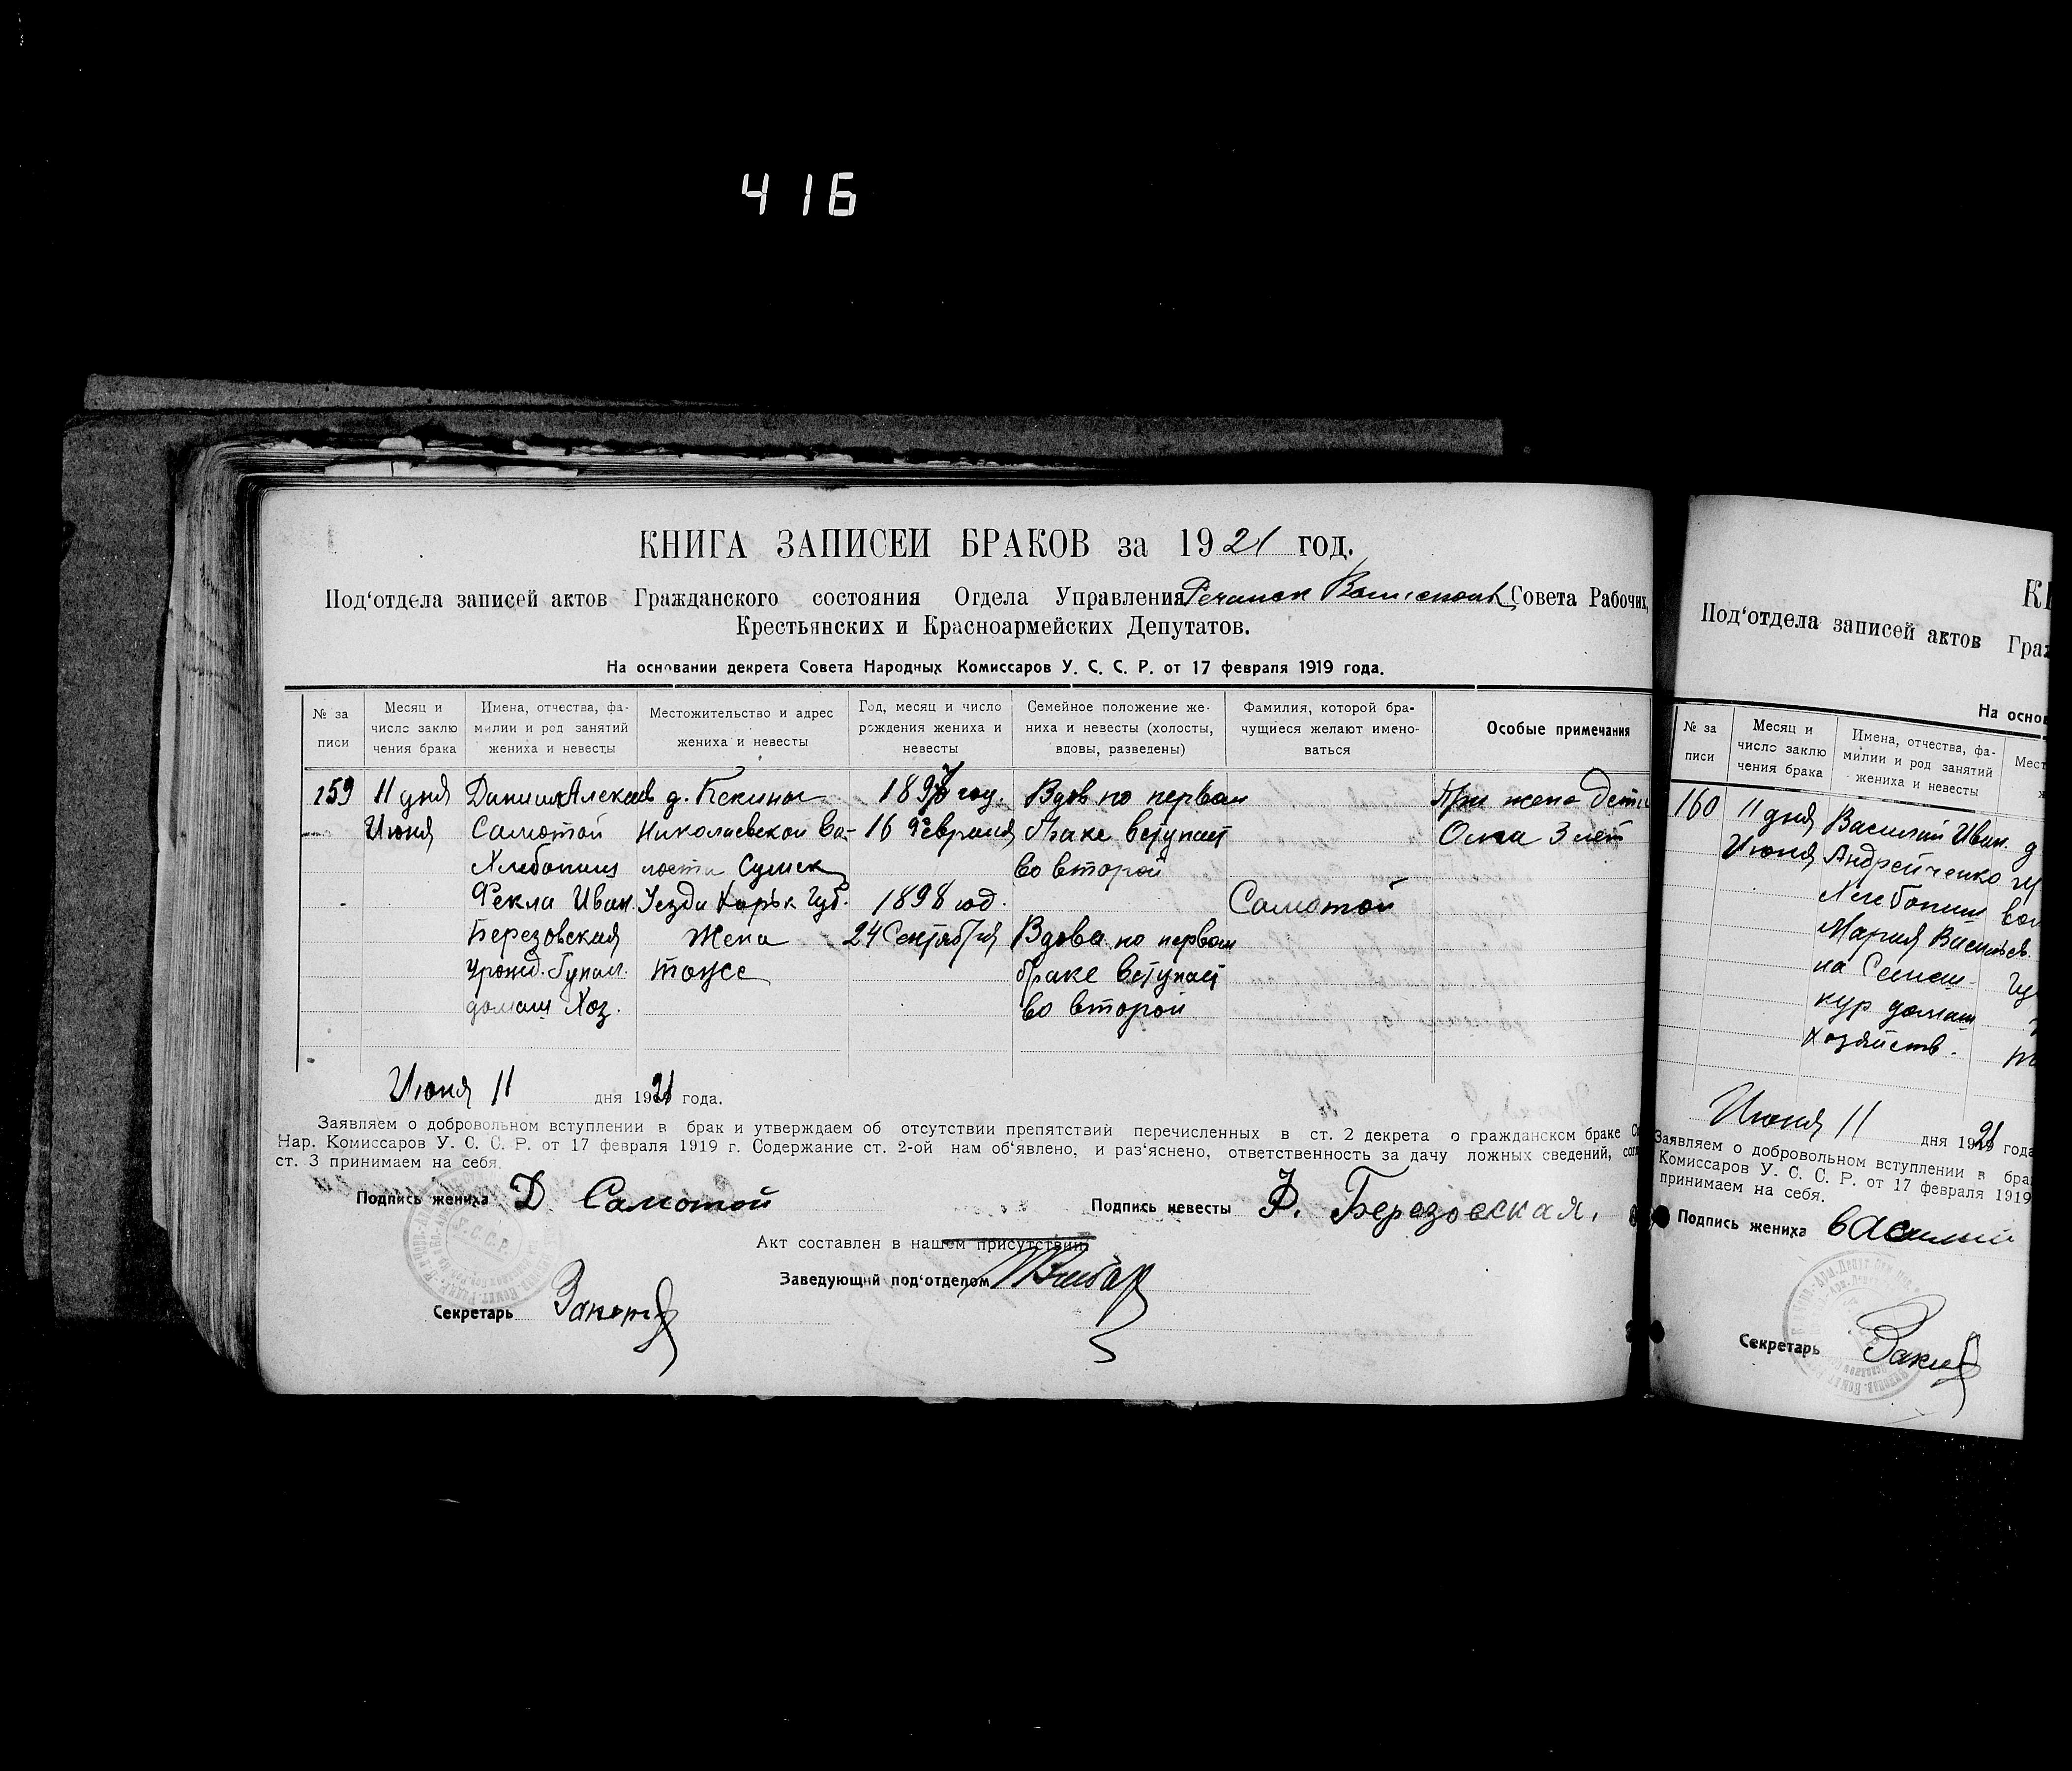 416
КНИГА ЗАПИСЕЙ БРАКОВ за 1921 год.
Под‘отдела записей актов Гражданского состояния Отдела Управления Совета Рабочих,
Крестьянских и Красноармейских Депутатов.
На основании декрета Совета Народных Комиссаров У. С. С. Р. от 17 февраля 1919 года.
№ за писи
Месяц и число заклю чения брака
Имена, отчества, фа- милии и род занятий жениха и невесты
Местожительство и адрес жениха и невесты
Год, месяц и число рождения жениха и невесты
Семейное положение же- ниха и невесты (холосты, вдовы, разведены)
Фамилия, которой бра- чущиеся желают имено- ваться
Особые примечания
159
11 дня
Июня
Самотой
Фекла Иван.
Березовская
урожд.
домаш Хоз.
д.
Николаевской Во-
лости Сумск
Уезда Харьк Губ.
Жена
тоже
год.
16 Февраля
1898 год.
24 Сентября
Вдов по первом
браке вступает
во второй
Вдова по первом
браке вступает
во второй
Самотой
При жена дети
3 лет
Июня 11 дня 1921 года.
Заявляем о добровольном вступлении в брак и утверждаем об отсутствии препятствий перечисленных в ст. 2 декрета о гражданском браке
Нар. Комиссаров У. С. С. Р. от 17 февраля 1919 г. Содержание ст. 2-ой нам об‘явлено, и раз‘яснено, ответственность за дачу ложных сведений,
ст. 3 принимаем на себя.
Подпись жениха Д Самотой
Подпись невесты Ф. Березовская.
Акт составлен в нашем присутствии:
Заведующий под‘отделом
Секретарь
У.С.С.Р.
Под‘отдела записей актов
№ за писи
Месяц и число заклю чения брака
Имена, отчества, фа- милии и род занятий жениха и невесты
160
11 дня
Июня
Василий Иван.
Андрейченко
Мария Васильев.
на
домаш
Хозяйств.
Июня 11 дня 1921 года
Заявляем о добровольном вступлении в
Комиссаров У. С. С. Р. от 17 февраля 1919
принимаем на себя.
Подпись жениха Василий
Секретарь